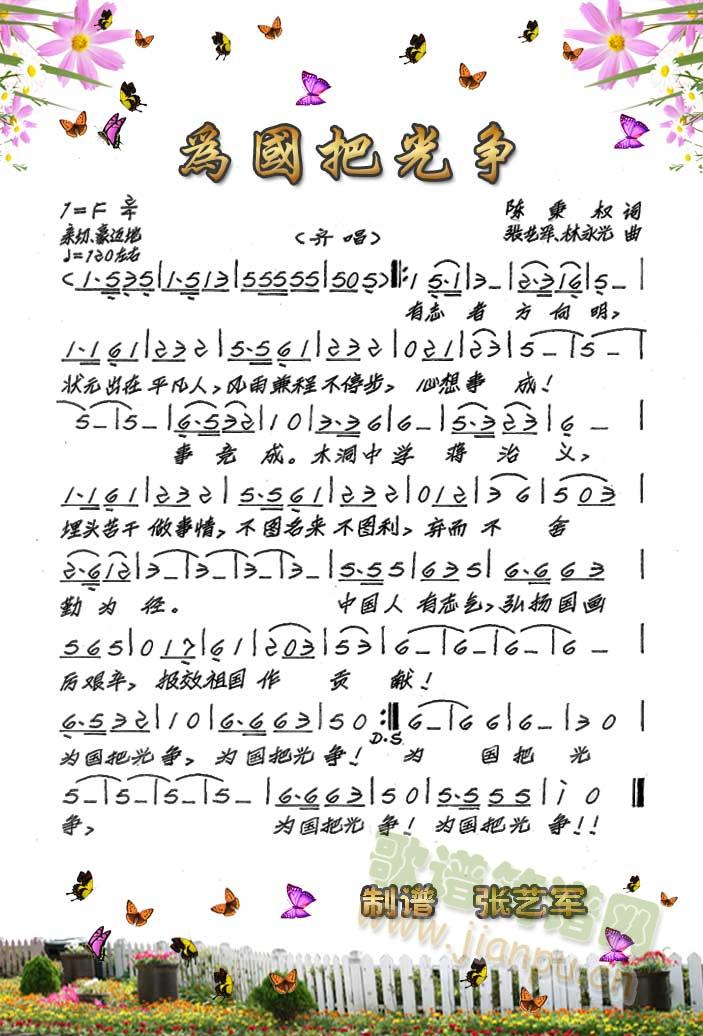 為國把光争
1=F 2/4
陈秉权 词
亲切、豪迈地
(齐唱)
张艺军、林永光 曲
♩=120左右
(1·535|1·513|55555|505)‖:1 5·1|3—|2·316|5—|
有志 者 方向明,
1·161|232|5·561|232|021|232|5—|5—|
状元出在平凡人,风雨兼程不停步, 心想事 成!
5—|5—|6·532|10|3·36|6—|5·323|6—|
事竞成。木洞中学 蒋治义,
1·161|232|5·561|232|012|36|503|
埋头苦干做事情,不图名来不图利,弃而不 舍
2·612|3—|3—|3—|3—|5·55|635|6·663|
勤为径。 中国人有志气,弘扬国画
565|017|61|203|53|6—|6—|6—|6—|
历艰辛,报效祖国作 贡 献!
6·532|10|6·663|50:‖6—|66|6—|30|
D.S
为国把光争,为国把光争! 为 国把光
5—|5—|5—|5—|6·663|50|5·555|i0‖
争, 为国把光争!为国把光争!!
制谱 张艺军
歌谱简谱网
www.jianpu.cn